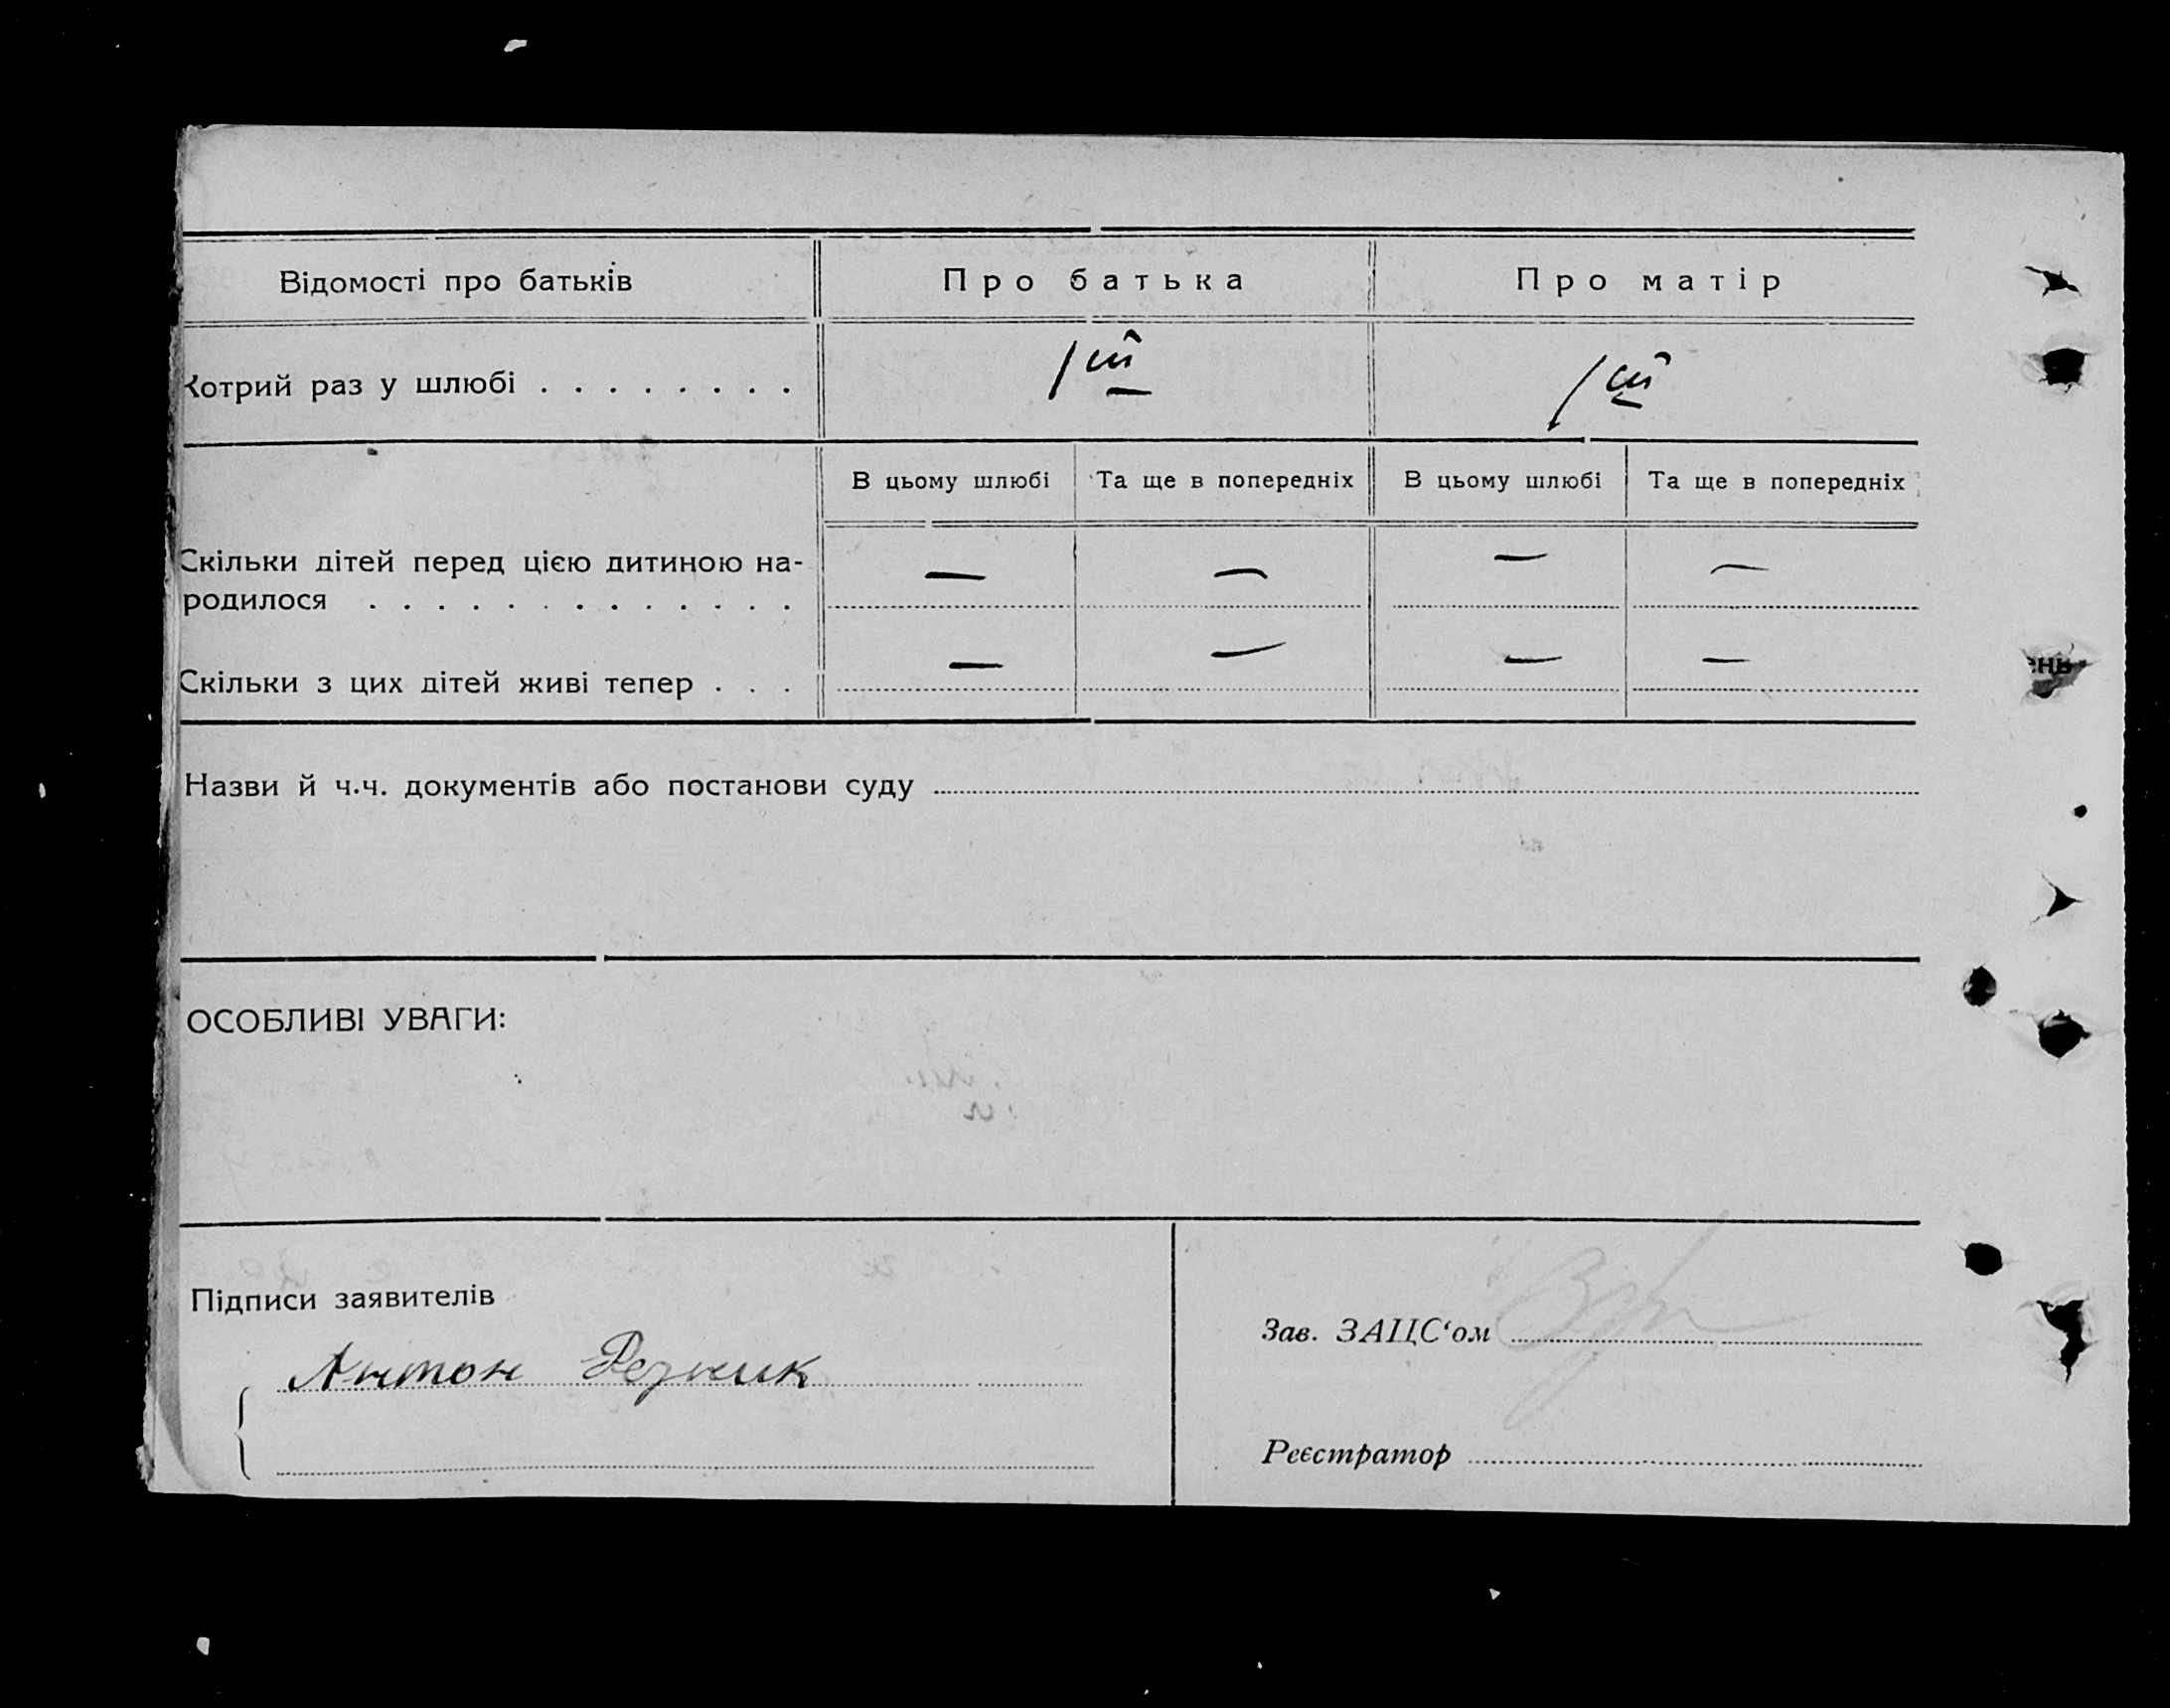 Відомості про батьків
Про батька
Про матір
Котрий раз у шлюбі . . . . . . . .
1ий
1ий
В цьому шлюбі
Та ще в попередніх
В цьому шлюбі
Та ще в попередніх
Скільки дітей перед цією дитиною на-
— — — —
родилося . . . . . . . . . . . . .
— — — —
Скільки з цих дітей живі тепер . . .
ень
Назви й ч.ч. документів або постанови суду
ОСОБЛИВІ УВАГИ:
Підписи заявителів
Антон Резник
Зав. ЗАЦС‘ом
Реєстратор